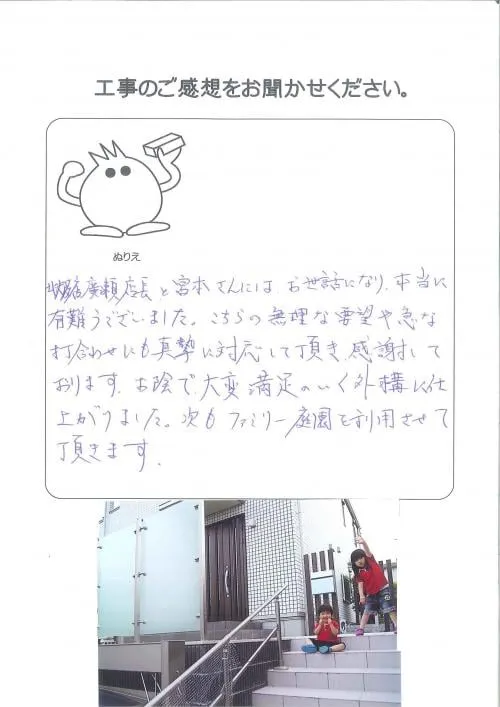 工事のご感想をお聞かせください。
ぬりえ
廣瀬店長と宮本さんには お世話になり、本当に
有難うございました。こちらの無理な要望や急な
打合わせにも真摯に対応して頂き、感謝して
おります。お陰で、大変満足のいく外構に仕
上がりました。次もファミリー庭園を利用させて
頂きます。